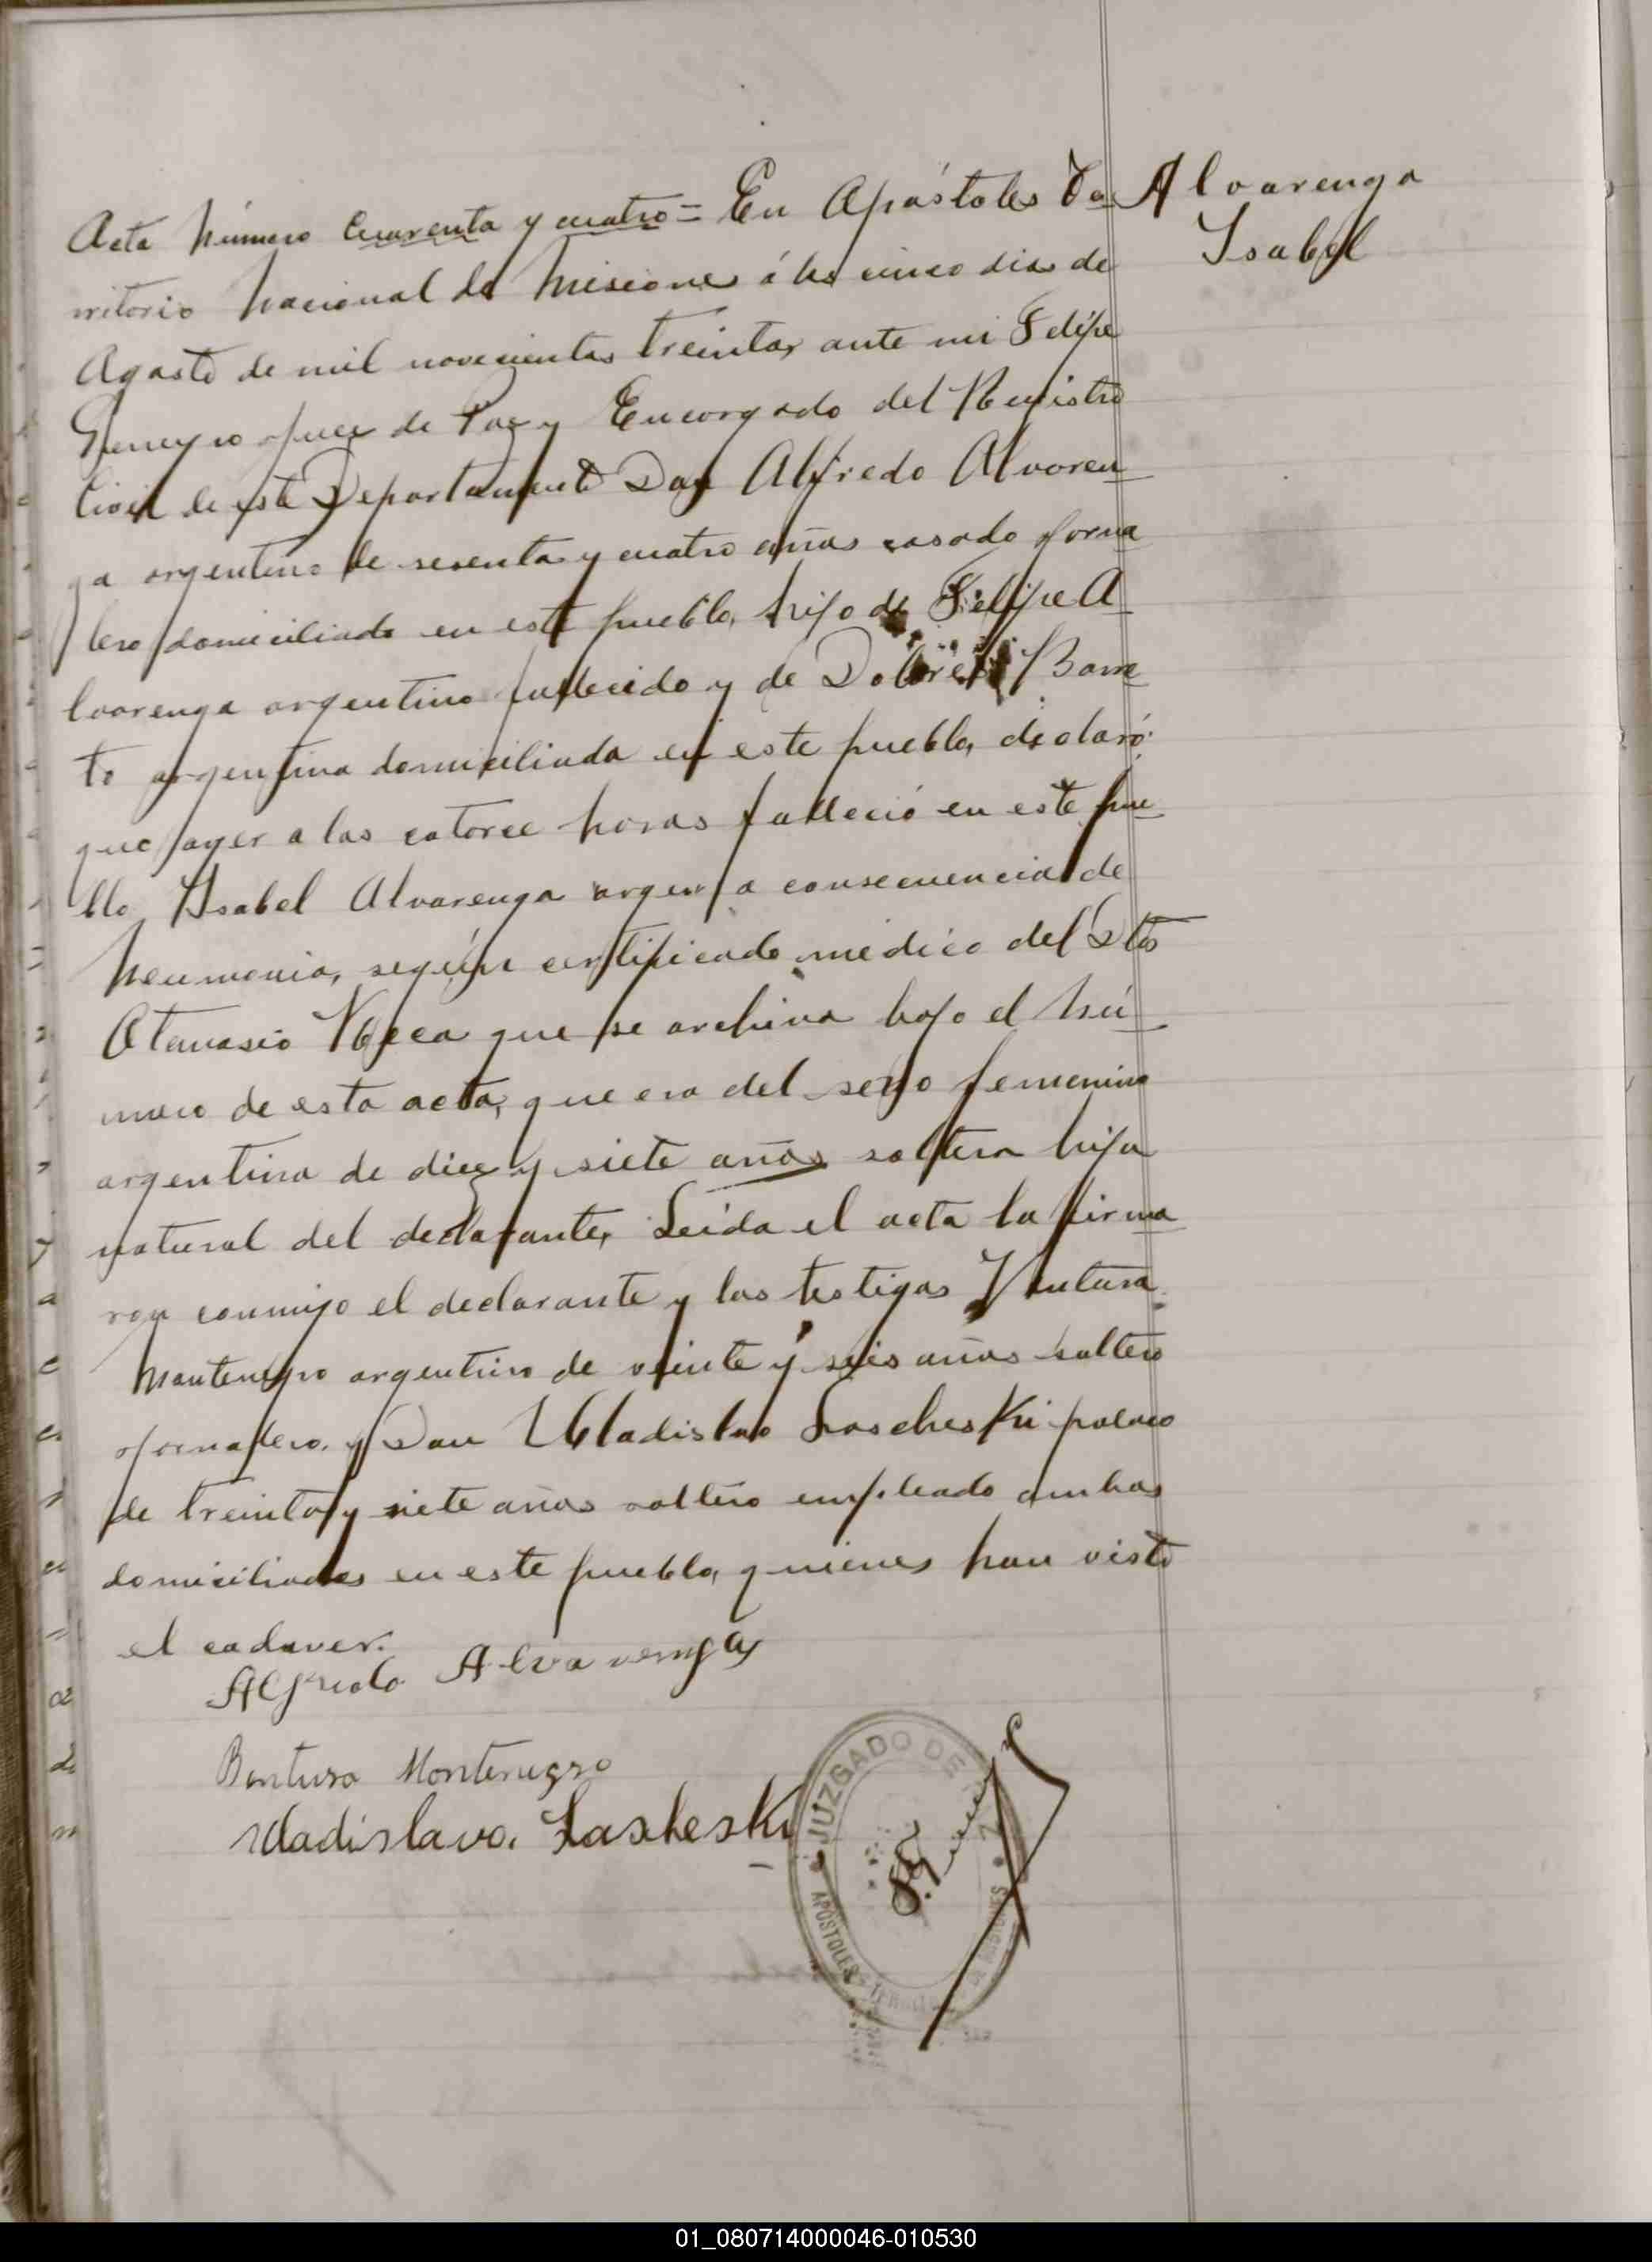 Acta Número Cuarenta y cuatro = En Apóstoles Te
Alvarenga
Isabel
rritorio Nacional de Misiones á los cinco dias de
Agosto de mil novecientos treinta, ante mi Felipe
Juez de Paz y Encargado del Registro
Civil de este Departamento Don Alfredo Alvaren
ga argentino de sesenta y cuatro años casado jorna
lero domiciliado en este pueblo, hijo de Felipe A
lvarenga argentino fallecido y de Dolores Barre
to argentina domiciliada en este pueblo, declaró:
que ayer a las catorce horas falleció en este pue
blo, Isabel Alvarenga a consecuencia de
Neumonia, según certificado médico del Dtor
Atanasio que se archiva bajo el nú
mero de esta acta, que era del sexo femenino
argentina de diez y siete años soltera hija
natural del declarante, Leída el acta la firma
ron conmigo el declarante y los testigos Ventura
Montenegro argentino de veinte y seis años soltero
jornalero, y Don Uladislao Lascheski polaco
de treinta y siete años soltero empleado ambos
domiciliados en este pueblo, quienes han visto
el cadaver.
Alfredo Alvarenga
Bentura Montenegro
Uladislavo. Lasheski
JUZGADO DE
APOSTOLES
01_080714000046-010530